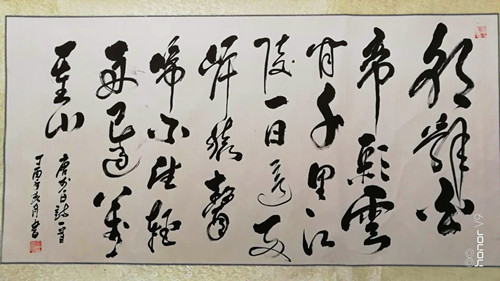 朝辭白
帝彩雲
间千里江
陵一日還兩
岸猿聲
啼不住輕
舟已過萬
重山
唐李白詩一首
丁酉年月書
honor V9